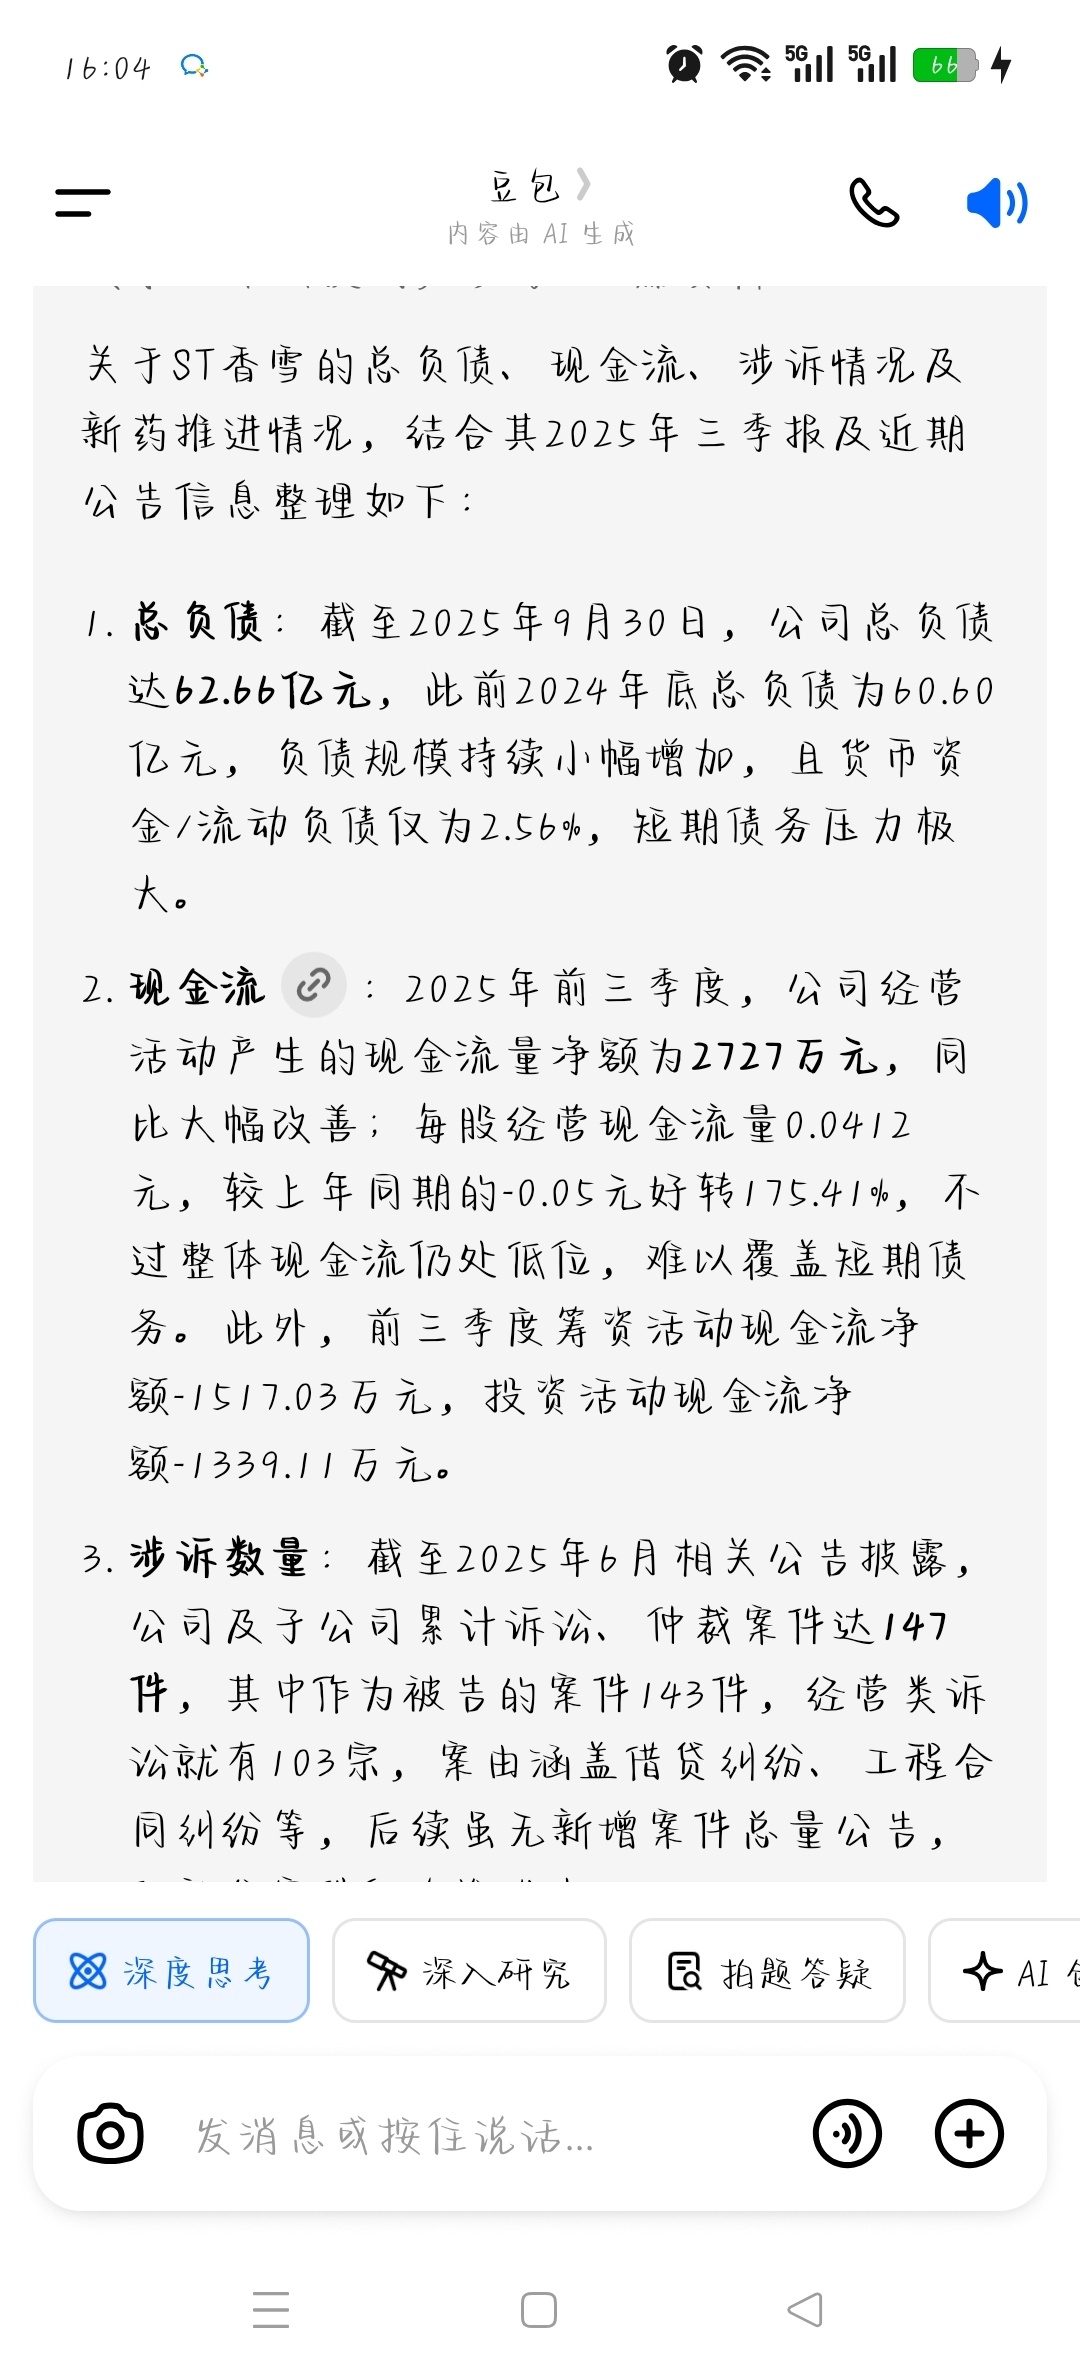 16:04
5G 5G 66
豆包
内容由 AI 生成
关于ST香雪的总负债、现金流、涉诉情况及
新药推进情况，结合其2025年三季报及近期
公告信息整理如下：
1. 总负债：截至2025年9月30日，公司总负债
达62.66亿元，此前2024年底总负债为60.60
亿元，负债规模持续小幅增加，且货币资
金/流动负债仅为2.56%，短期债务压力极
大。
2. 现金流 ：2025年前三季度，公司经营
活动产生的现金流量净额为2727万元，同
比大幅改善；每股经营现金流量0.0412
元，较上年同期的-0.05元好转175.41%，不
过整体现金流仍处低位，难以覆盖短期债
务。此外，前三季度筹资活动现金流净
额-1517.03万元，投资活动现金流净
额-1339.11万元。
3. 涉诉数量：截至2025年6月相关公告披露，
公司及子公司累计诉讼、仲裁案件达147
件，其中作为被告的案件143件，经营类诉
讼就有103宗，案由涵盖借贷纠纷、工程合
同纠纷等，后续虽无新增案件总量公告，
深度思考
深入研究
拍题答疑
AI
发消息或按住说话...